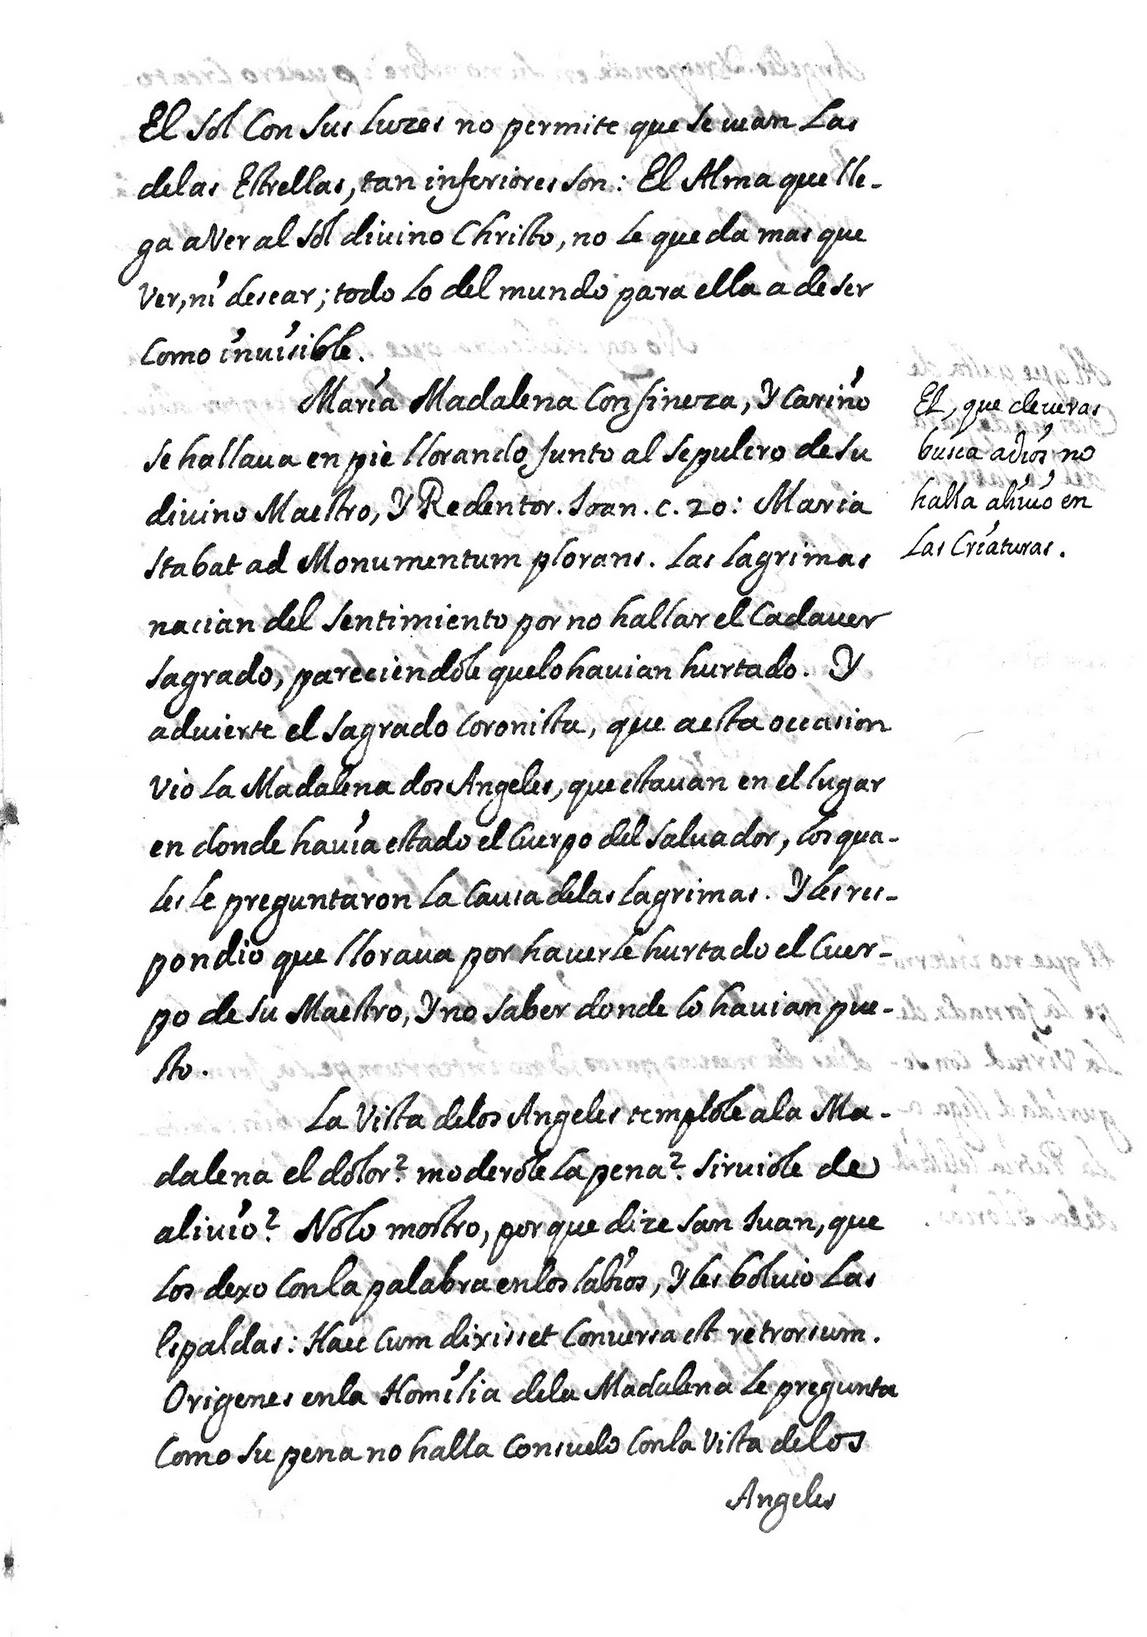 El Sol Con Sus Luzes no permite que se vean Las
delas Estrellas, tan inferiores son: El Alma que lle-
ga a Ver al Sol divino Christo, no le queda mas que
Ver, ni desear; todo lo del mundo para ella a de ser
Como invisible.
Maria Madalena Con fineza, Y Cariño
se hallava en pie llorando Junto al sepulcro de su
divino Maestro, Y Redentor. Ioan. c. 20: Maria
stabat ad Monumentum plorans. Las lagrimas
nacian del sentimiento por no hallar el Cadaver
sagrado, pareciendole quelo havian hurtado. Y
advierte el sagrado Coronista, que aesta occasion
Vio La Madalena dos Angeles, que estavan en el lugar
en donde havia estado el Cuerpo del Salvador, los qua-
les le preguntaron La Causa delas Lagrimas. Y les res-
pondio que llorava por haverle hurtado el Cuer-
po de su Maestro, Y no saber donde lo havian pue-
sto.
La Vista delos Angeles templole ala Ma-
dalena el dolor? moderole la pena? sirviole de
alivio? Nolo mostro, por que dize San Iuan, que
Los dexo Con la palabra enlos labios, Y les bolvio Las
Espaldas: Haec Cum dixisset Conversa est retrorsum.
Origenes enla Homilia dela Madalena le pregunta
Como su pena no halla Consuelo Con la Vista delos
Angeles
El, que deveras
busca a dios no
halla alivio en
Las Criaturas.